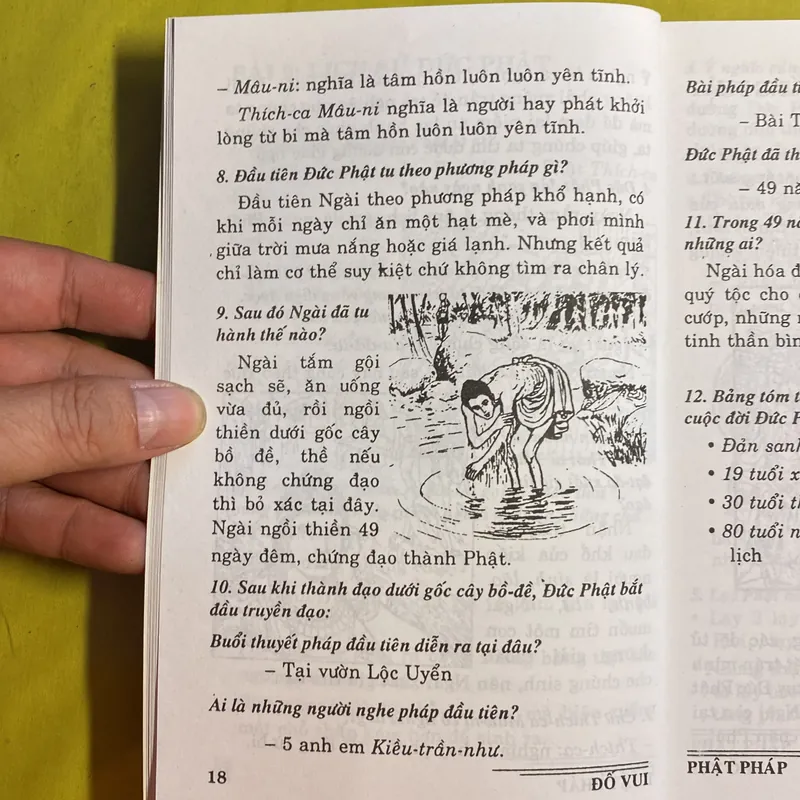 – Mâu-ni: nghĩa là tâm hồn luôn luôn yên tĩnh.
Thích-ca Mâu-ni nghĩa là người hay phát khởi
lòng từ bi mà tâm hồn luôn luôn yên tĩnh.
8. Đầu tiên Đức Phật tu theo phương pháp gì?
Đầu tiên Ngài theo phương pháp khổ hạnh, có
khi mỗi ngày chỉ ăn một hạt mè, và phơi mình
giữa trời mưa nắng hoặc giá lạnh. Nhưng kết quả
chỉ làm cơ thể suy kiệt chứ không tìm ra chân lý.
9. Sau đó Ngài đã tu
hành thế nào?
Ngài tắm gội
sạch sẽ, ăn uống
vừa đủ, rồi ngồi
thiền dưới gốc cây
bồ đề, thề nếu
không chứng đạo
thì bỏ xác tại đây.
Ngài ngồi thiền 49
ngày đêm, chứng đạo thành Phật.
10. Sau khi thành đạo dưới gốc cây bồ-đề, Đức Phật bắt
đầu truyền đạo:
Buổi thuyết pháp đầu tiên diễn ra tại đâu?
– Tại vườn Lộc Uyển
Ai là những người nghe pháp đầu tiên?
– 5 anh em Kiều-trần-như.
18
ĐỐ VUI
Bài pháp đầu
– Bài
Đức Phật đã
– 49
11. Trong 49
những ai?
Ngài hóa
quý tộc cho
cướp, những
tinh thần
12. Bảng tóm
cuộc đời Đức
• Đản sanh
• 19 tuổi
• 30 tuổi
• 80 tuổi
lịch
PHẬT PHÁP